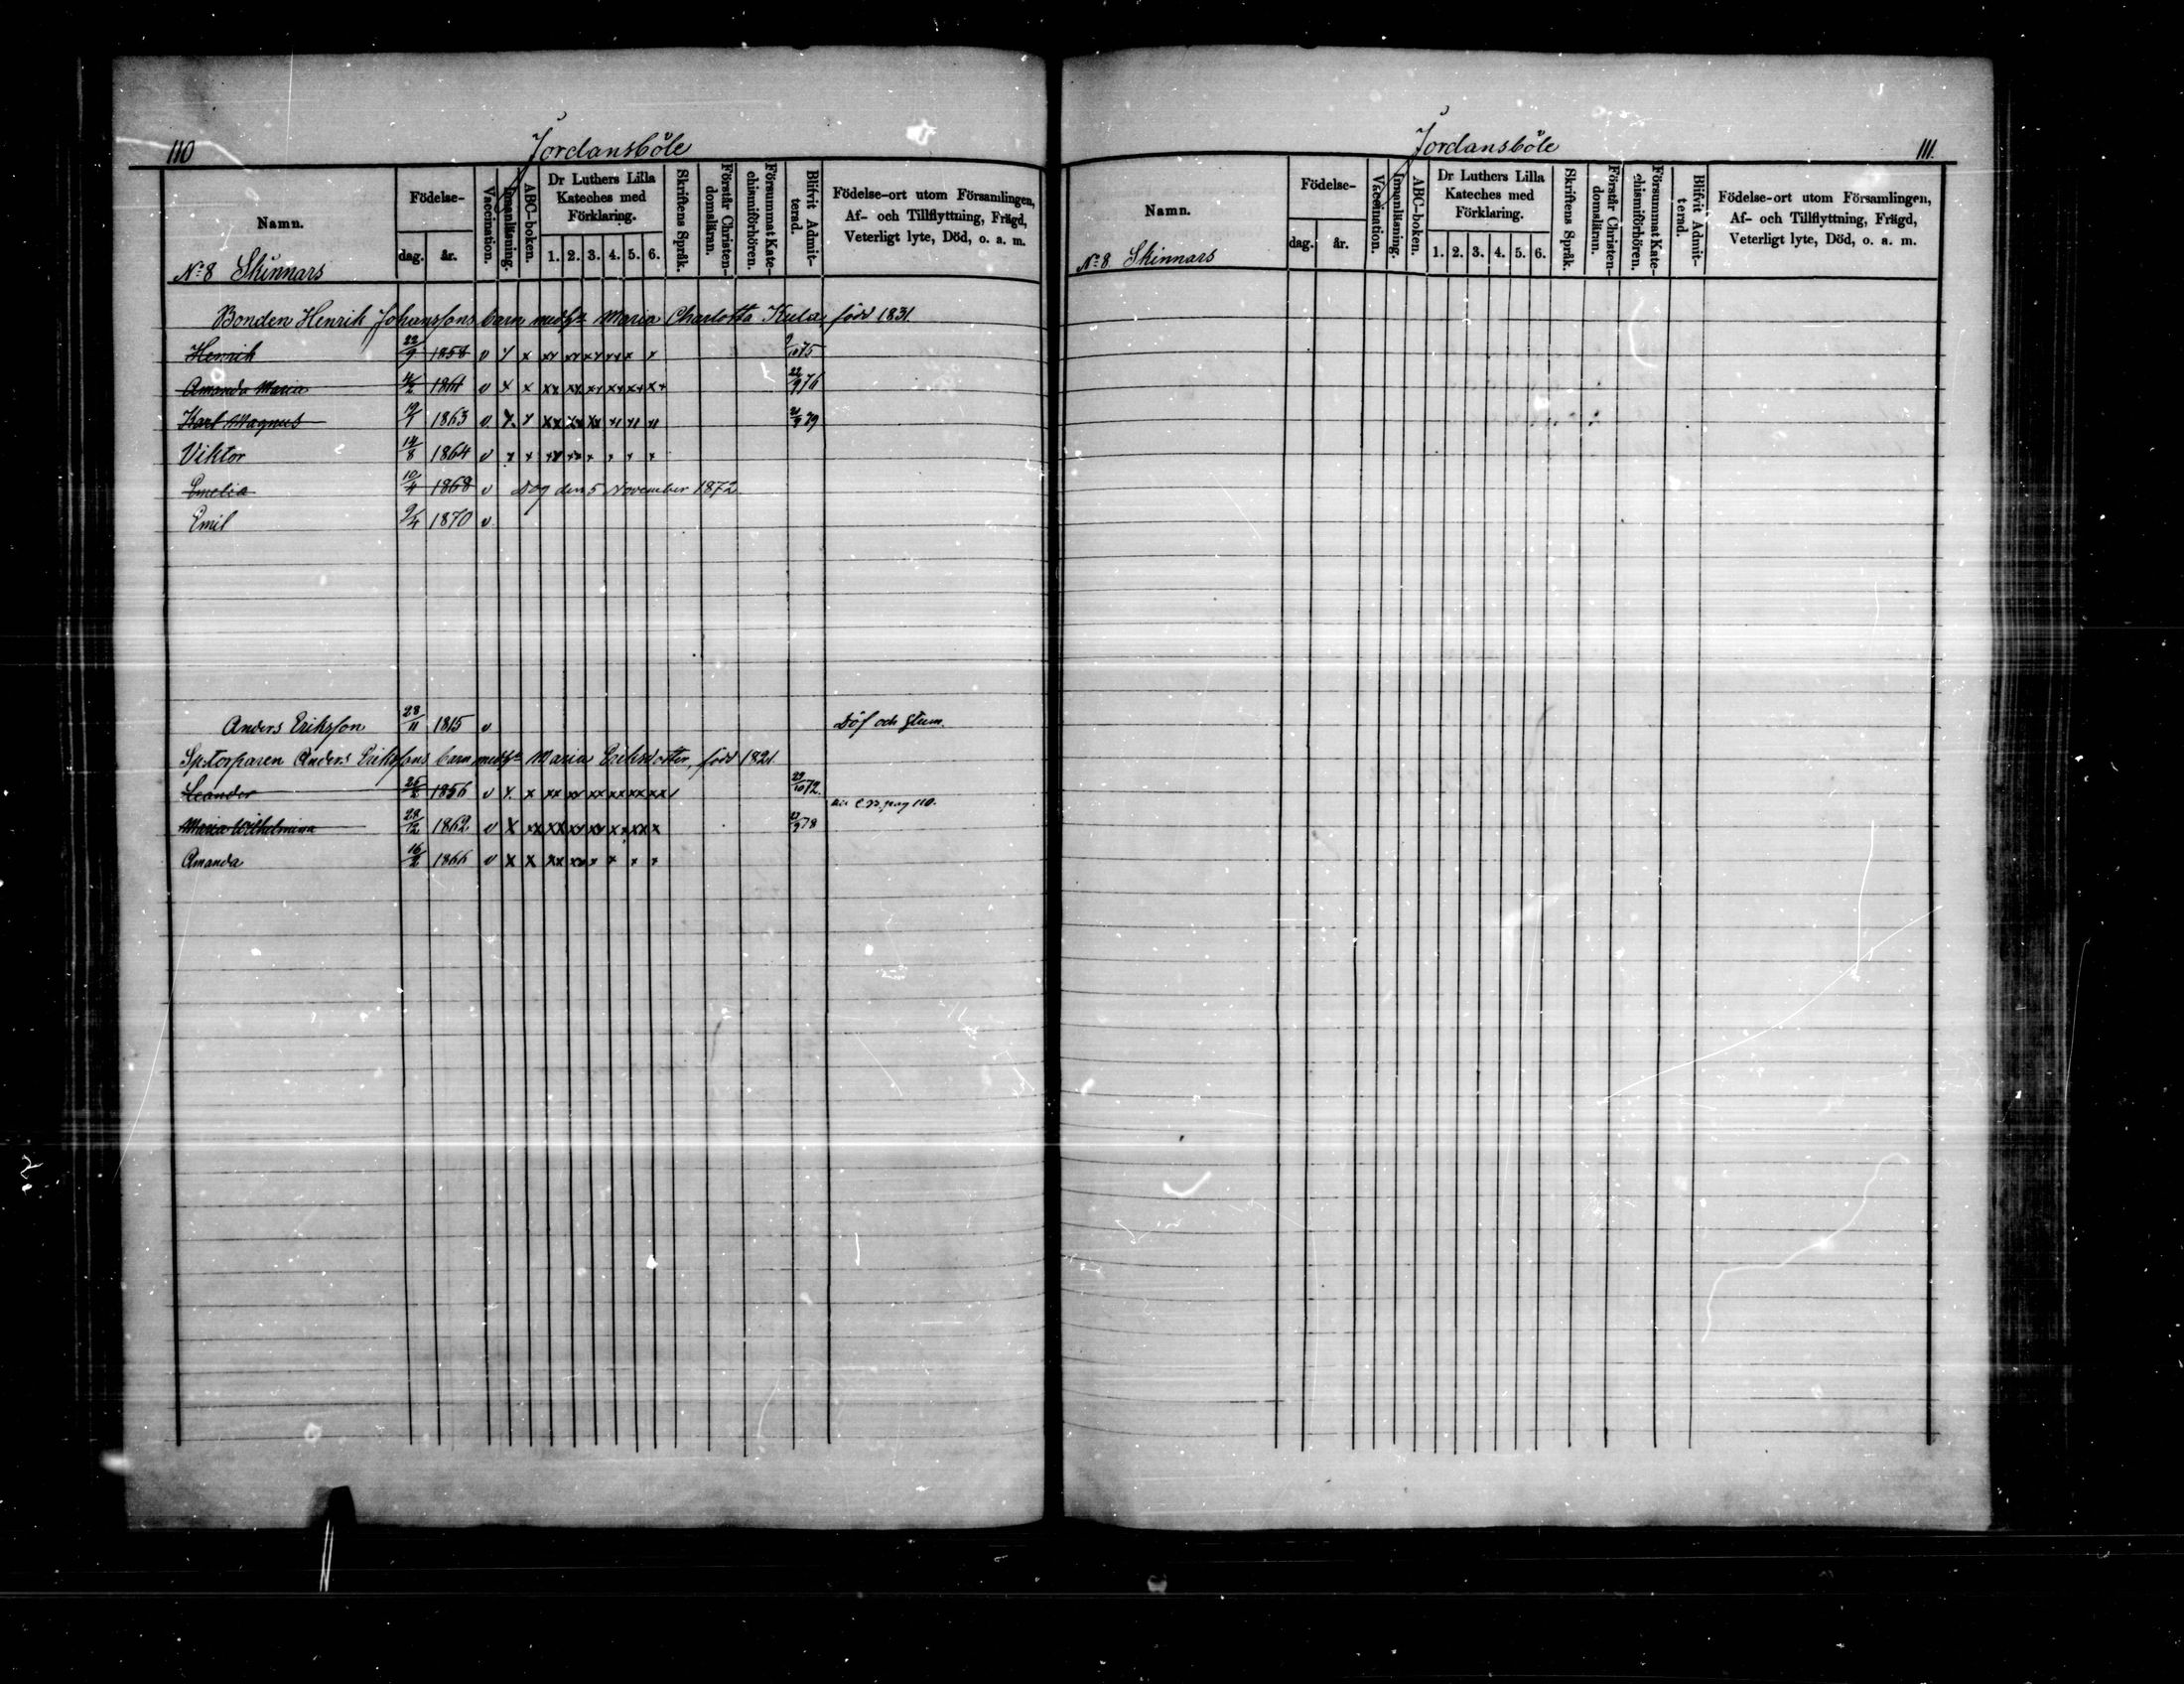 110 Jordansböle
Namn. Födelse- dag. år. Vaccination. Innanläsning. ABC-boken. Dr Luthers Lilla Kateches med Förklaring. 1. 2. 3. 4. 5. 6. Skriftens Språk. Förstår Christen-domsläran. Försummat Kate-chismiförhören. Blifvit Admit-terad. Födelse-ort utom Församlingen, Af- och Tillflyttning, Frägd, Veterligt lyte, Död, o. a. m.
No 8 Skinnars
Bonden Henrik Johanssons barn med h. Maria Charlotta Kula, född 1831.
Henrik 22/9 1858 v x x xx xx xx xx x x /10 75
Amanda Maria 4/2 1861 v x x xx xx xx xx xx xx 22/9 76
Karl Magnus 19/1 1863 v x x xx xx xx xx xx xx 21/9 79
Viktor 14/8 1864 v x x xx xx x x x x
Emelia 10/4 1868 v Dog den 5 November 1872
Emil 9/4 1870 v
Anders Eriksson 28/11 1815 v Döf och stum.
Sp.torparen Anders Erikssons barn med h. Maria Eriksdotter, född 1821
Leander 25/2 1856 v x x xx xx xx xx xx xx 29/10 72.
pag 110.
Maria Wilhelmina 28/12 1862 v x xx xx xx xx x x xx x /9 78
Amanda 16/2 1866 v x x xx xx x x x x
Jordansböle 111.
Namn. Födelse- dag. år. Vaccination. Innanläsning. ABC-boken. Dr Luthers Lilla Kateches med Förklaring. 1. 2. 3. 4. 5. 6. Skriftens Språk. Förstår Christen-domsläran. Försummat Kate-chismiförhören. Blifvit Admit-terad. Födelse-ort utom Församlingen, Af- och Tillflyttning, Frägd, Veterligt lyte, Död, o. a. m.
No 8. Skinnars